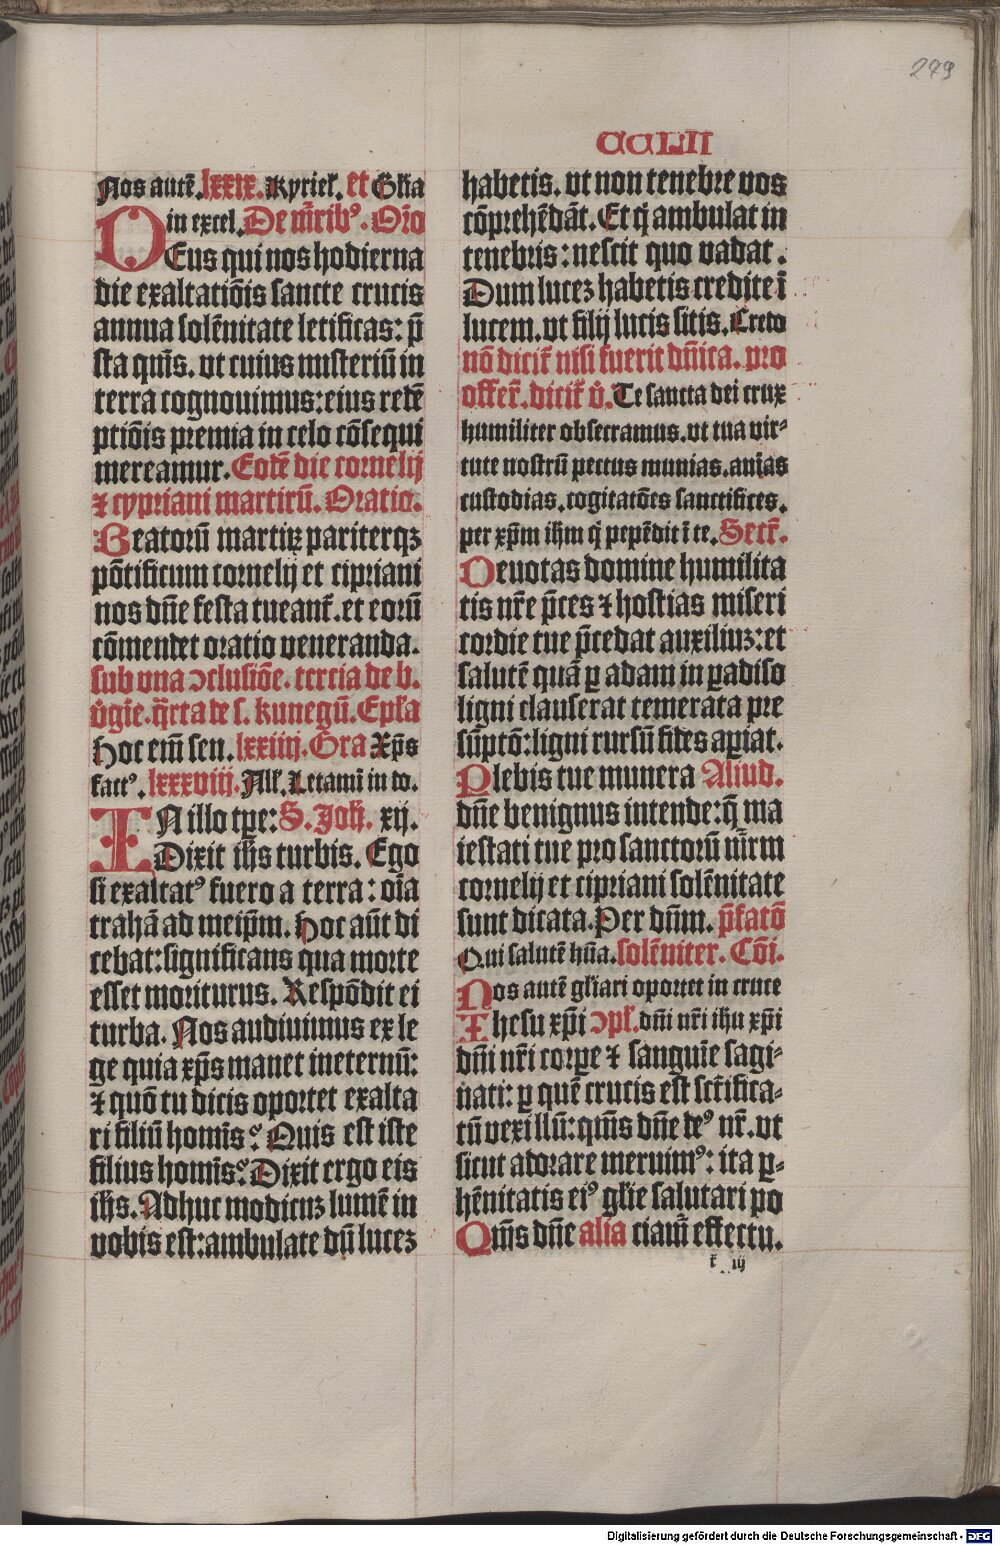 249
CCLII
Nos autē. lxxix. Kyriel̄. et Gl̄ia
in excel. De m̄rib⁹. Or̄o
DEus qui nos hodierna
die exaltatiōis sancte crucis
annua solēnitate letificas: p̄
sta qūs. vt cuius misteriū in
terra cognouimus: eius redē
ptiōis premia in celo cōsequi
mereamur. Eodē die cornelij
⁊ cypriani martirū. Oratio.
Beatorū martiꝝ pariterqꝫ
pōtificum cornelij et cipriani
nos dn̄e festa tueant̄. et eorū
cōmendet oratio veneranda.
sub vna ↄclusiōe. tercia de b.
v̄gīe. q̄rta de s. kunegū. Epl̄a
Hoc em̄ sen. lxxiiij. Gra Xp̄s
fact⁹. lxxxviij. All̄. Letamī in do.
IN illo tꝑe: S. Joh̄. xij.
Dixit ih̄s turbis. Ego
si exaltat⁹ fuero a terra: oīa
trahā ad meip̄m. Hoc aūt di
cebat: significans qua morte
esset moriturus. Respōdit ei
turba. Nos audiuimus ex le
ge quia xp̄s manet ineternū:
⁊ quō tu dicis oportet exalta
ri filiū homīs? Quis est iste
filius homīs? Dixit ergo eis
ih̄s. Adhuc modicuꝫ lumē in
vobis est: ambulate dū luceꝫ
habetis. vt non tenebre vos
cōprehēdāt. Et q̄ ambulat in
tenebris: nescit quo vadat.
Dum luceꝫ habetis credite ī
lucem. vt filij lucis sitis. Credo
nō dicit̄ nisi fuerit dn̄ica. pro
offer̄. dicit̄ v̄. Te sancta dei crux
humiliter obsecramus. vt tua vir⸗
tute nostrū pectus munias. aīas
custodias. cogitatōes sanctifices.
per xp̄m ih̄m q̄ pepēdit ī te. Secr̄.
Deuotas domine humilita
tis nr̄e p̄ces ⁊ hostias miseri
cordie tue p̄cedat auxiliuꝫ: et
salutē quā ꝑ adam in ꝑadiso
ligni clauserat temerata pre
sūptō: ligni rursū fides aꝑiat.
Plebis tue munera Aliud.
dn̄e benignus intende: q̄ ma
iestati tue pro sanctorū m̄rm
cornelij et cipriani solēnitate
sunt dicata. Per dn̄m. p̄fatō
Qui salutē hūa. solēniter. Cōi.
Nos autē gl̄iari oportet in cruce
Ihesu xp̄i ↄpl̄. dn̄i nr̄i ih̄u xp̄i
dn̄i nr̄i corꝑe ⁊ sanguīe sagi⸗
nati: ꝑ quē crucis est sct̄ifica⸗
tū vexillū: qm̄s dn̄e de⁹ nr̄. vt
sicut adorare meruim⁹: ita ꝑ⸗
hēnitatis ei⁹ gl̄ie salutari po
Qm̄s dn̄e alīa ciam̄ effectu.
r̄ iij
Digitalisierung gefördert durch die Deutsche Forschungsgemeinschaft - DFG